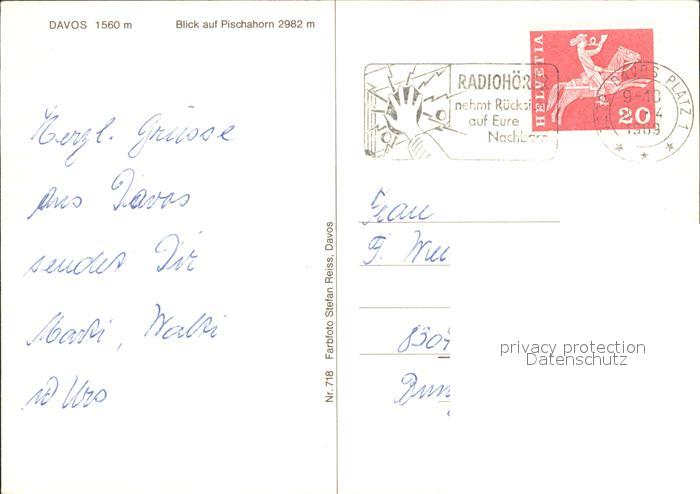 DAVOS 1560 m Blick auf Pischahorn 2982 m
Herzl. Grüsse
aus Davos
sendet Dir
Walti
Urs
Nr. 718 Farbfoto Stefan Reiss, Davos
RADIOHÖRER
nehmt Rücksi
auf Eure
Nachbarn
HELVETIA
20
DAVOS PLATZ 1
9-10
1969
Frau
F.
privacy protection
Datenschutz